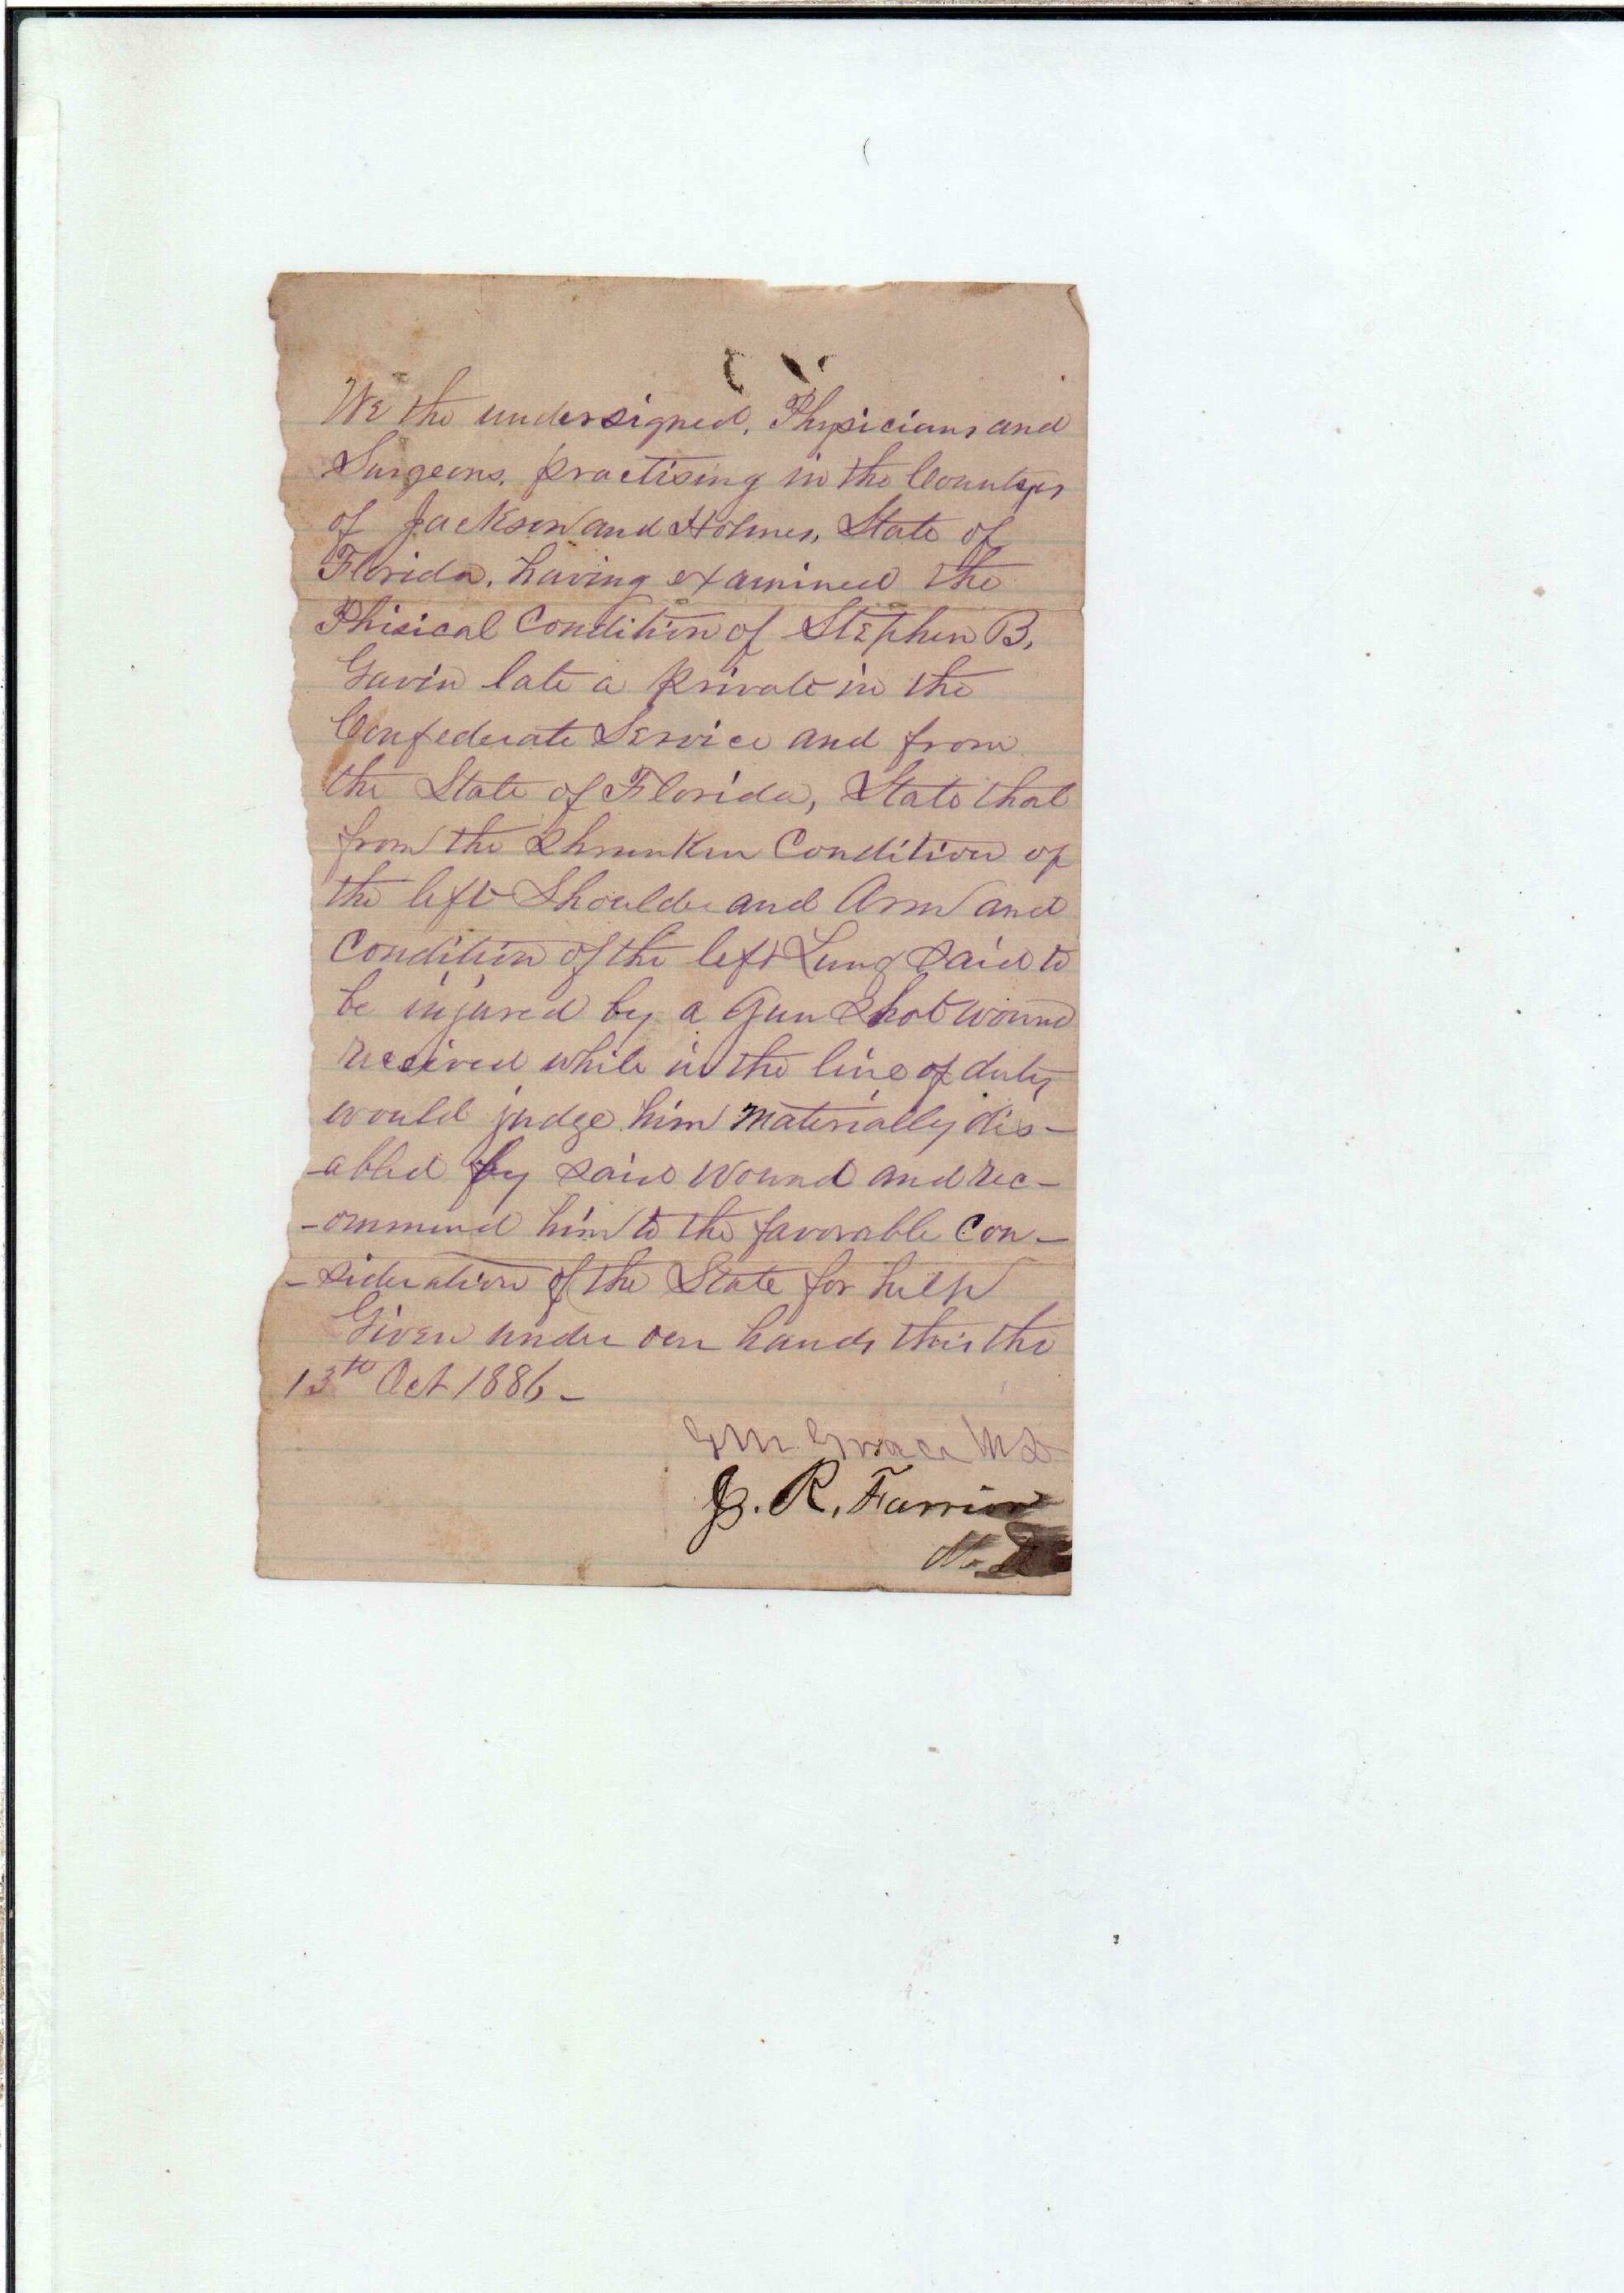 We the undersigned, Physicians and
Surgeons, practising in the Countys
of Jackson and Holmes, State of
Florida, having examined the
Phisical Condition of Stephen B.
Gavin late a private in the
Confederate Service and from
the State of Florida, State that
from the Shrunken Condition of
the left Shoulder and Arm and
Condition of the left Lung said to
be injured by a Gun Shot wound
received while in the line of duty
would judge him materially dis-
-abled by said wound and rec-
-ommend him to the favorable Con-
-sideration of the State for help
Given under our hands this the
13th Oct 1886-
Grace MD
J. R. Farrior
M.D